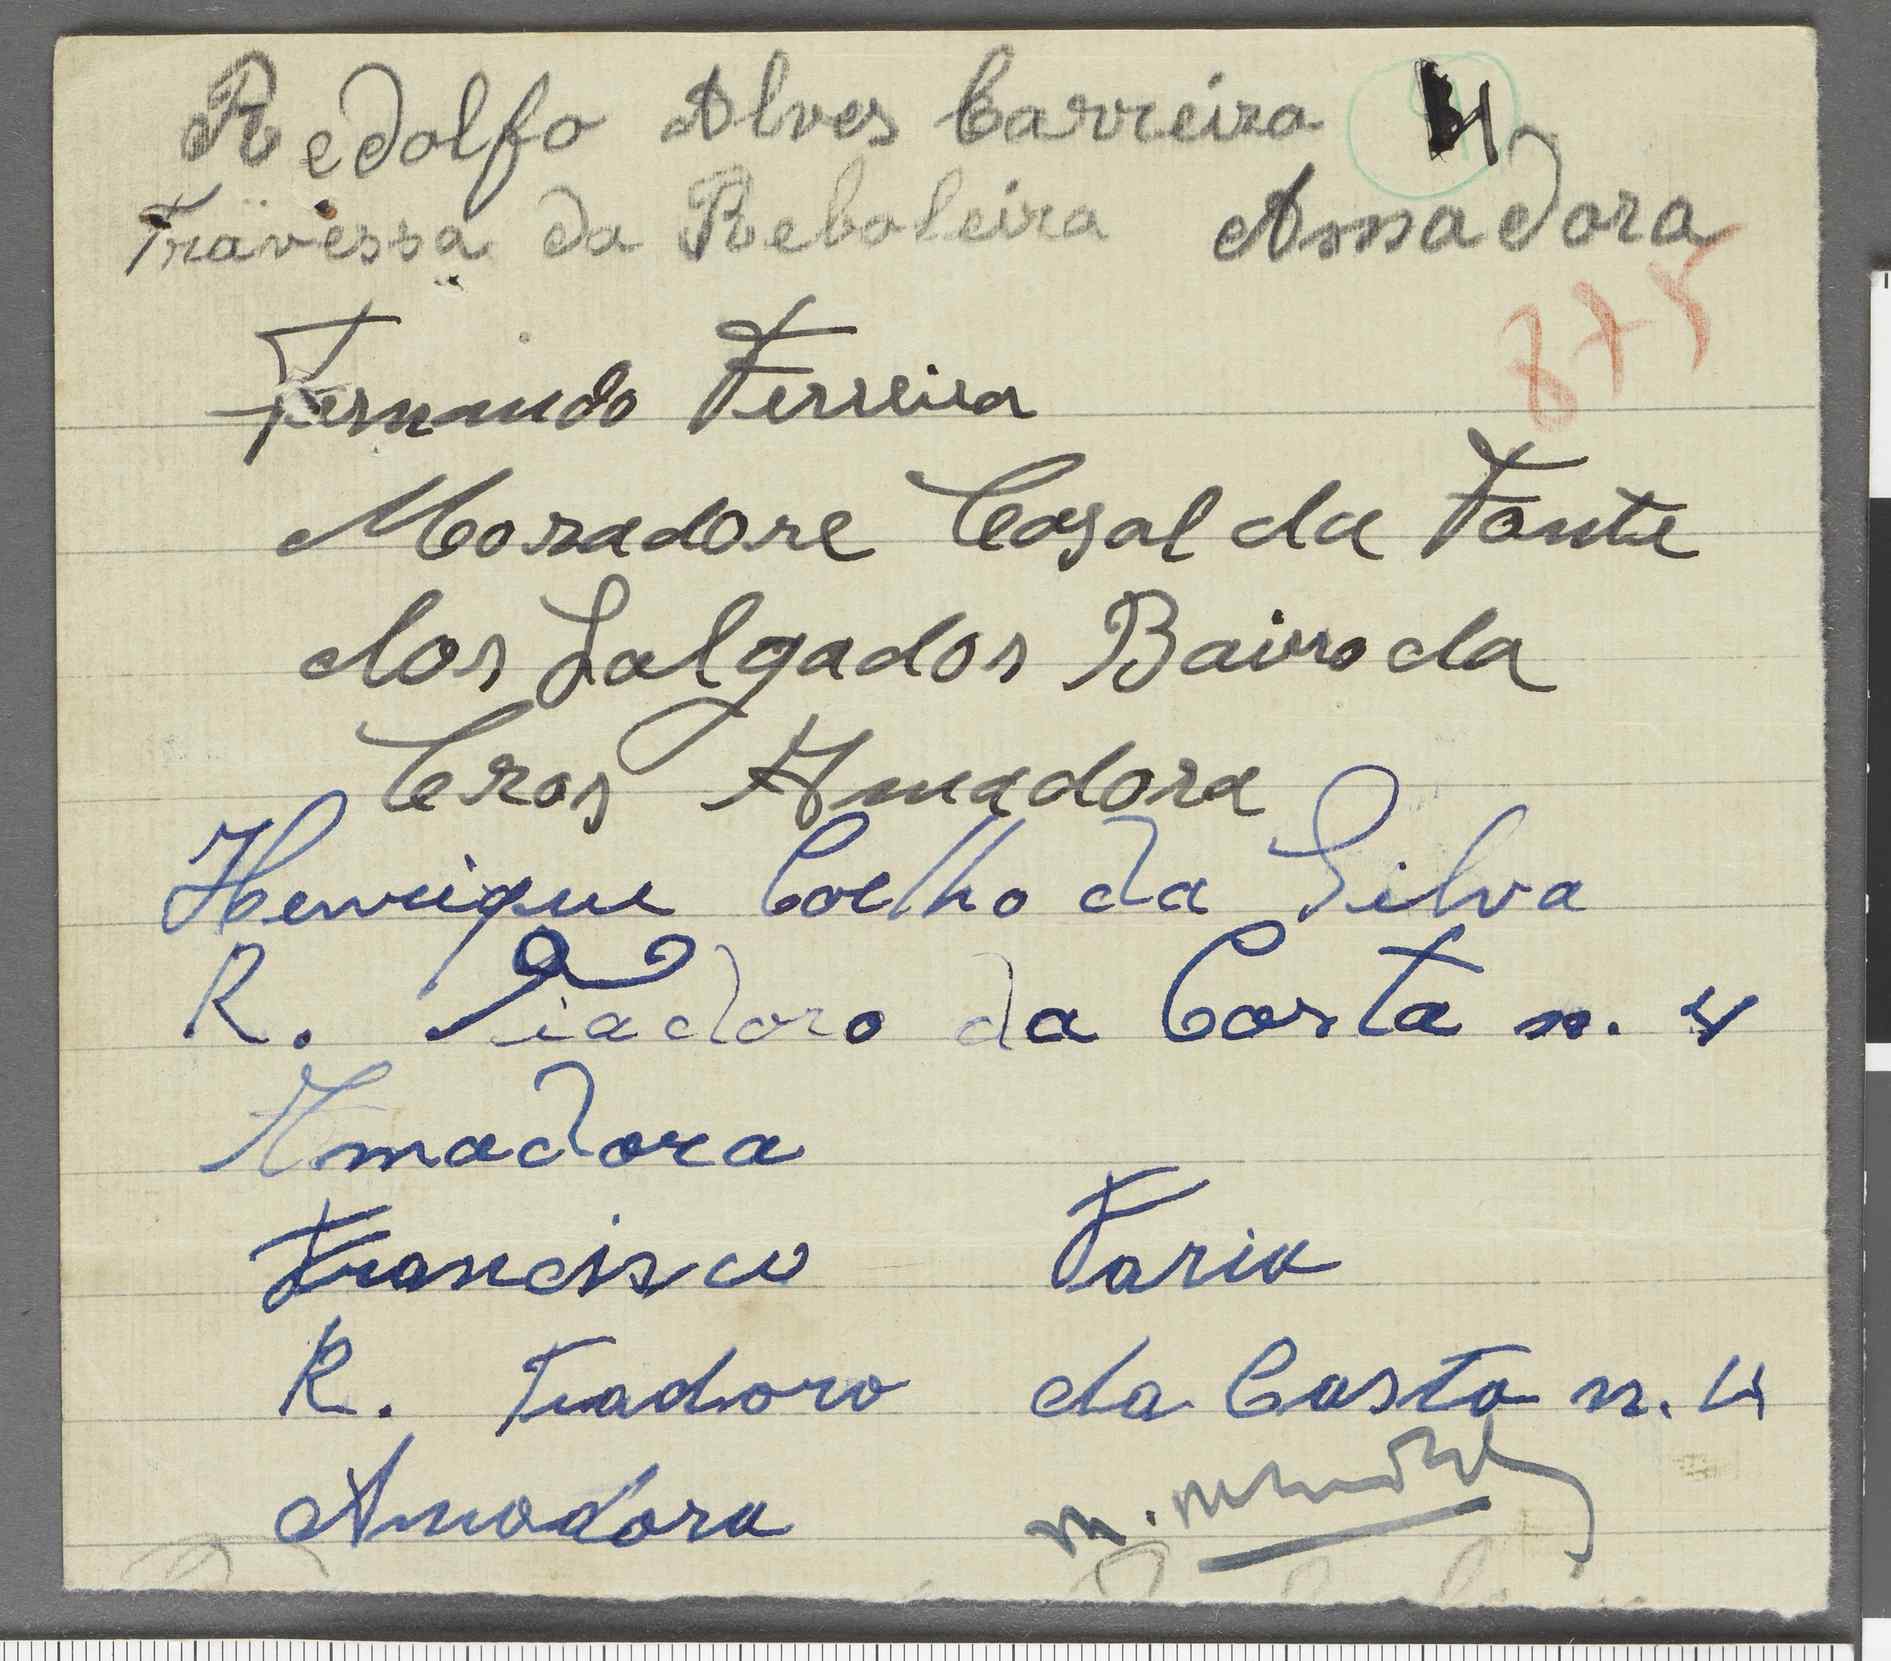 Redolfo Alves Carreira 4
Travessa da Reboleira Amadora
875
Fernando Ferreira
Moradore Casal da Fonte
dos Salgados Bairro da
Cros Amadora
Henrique Coelho da Silva
R. Tiadoro da Costa n. 4
Amadora
Francisco Faria
R. Tiadoro da Costa n. 4
Amadora